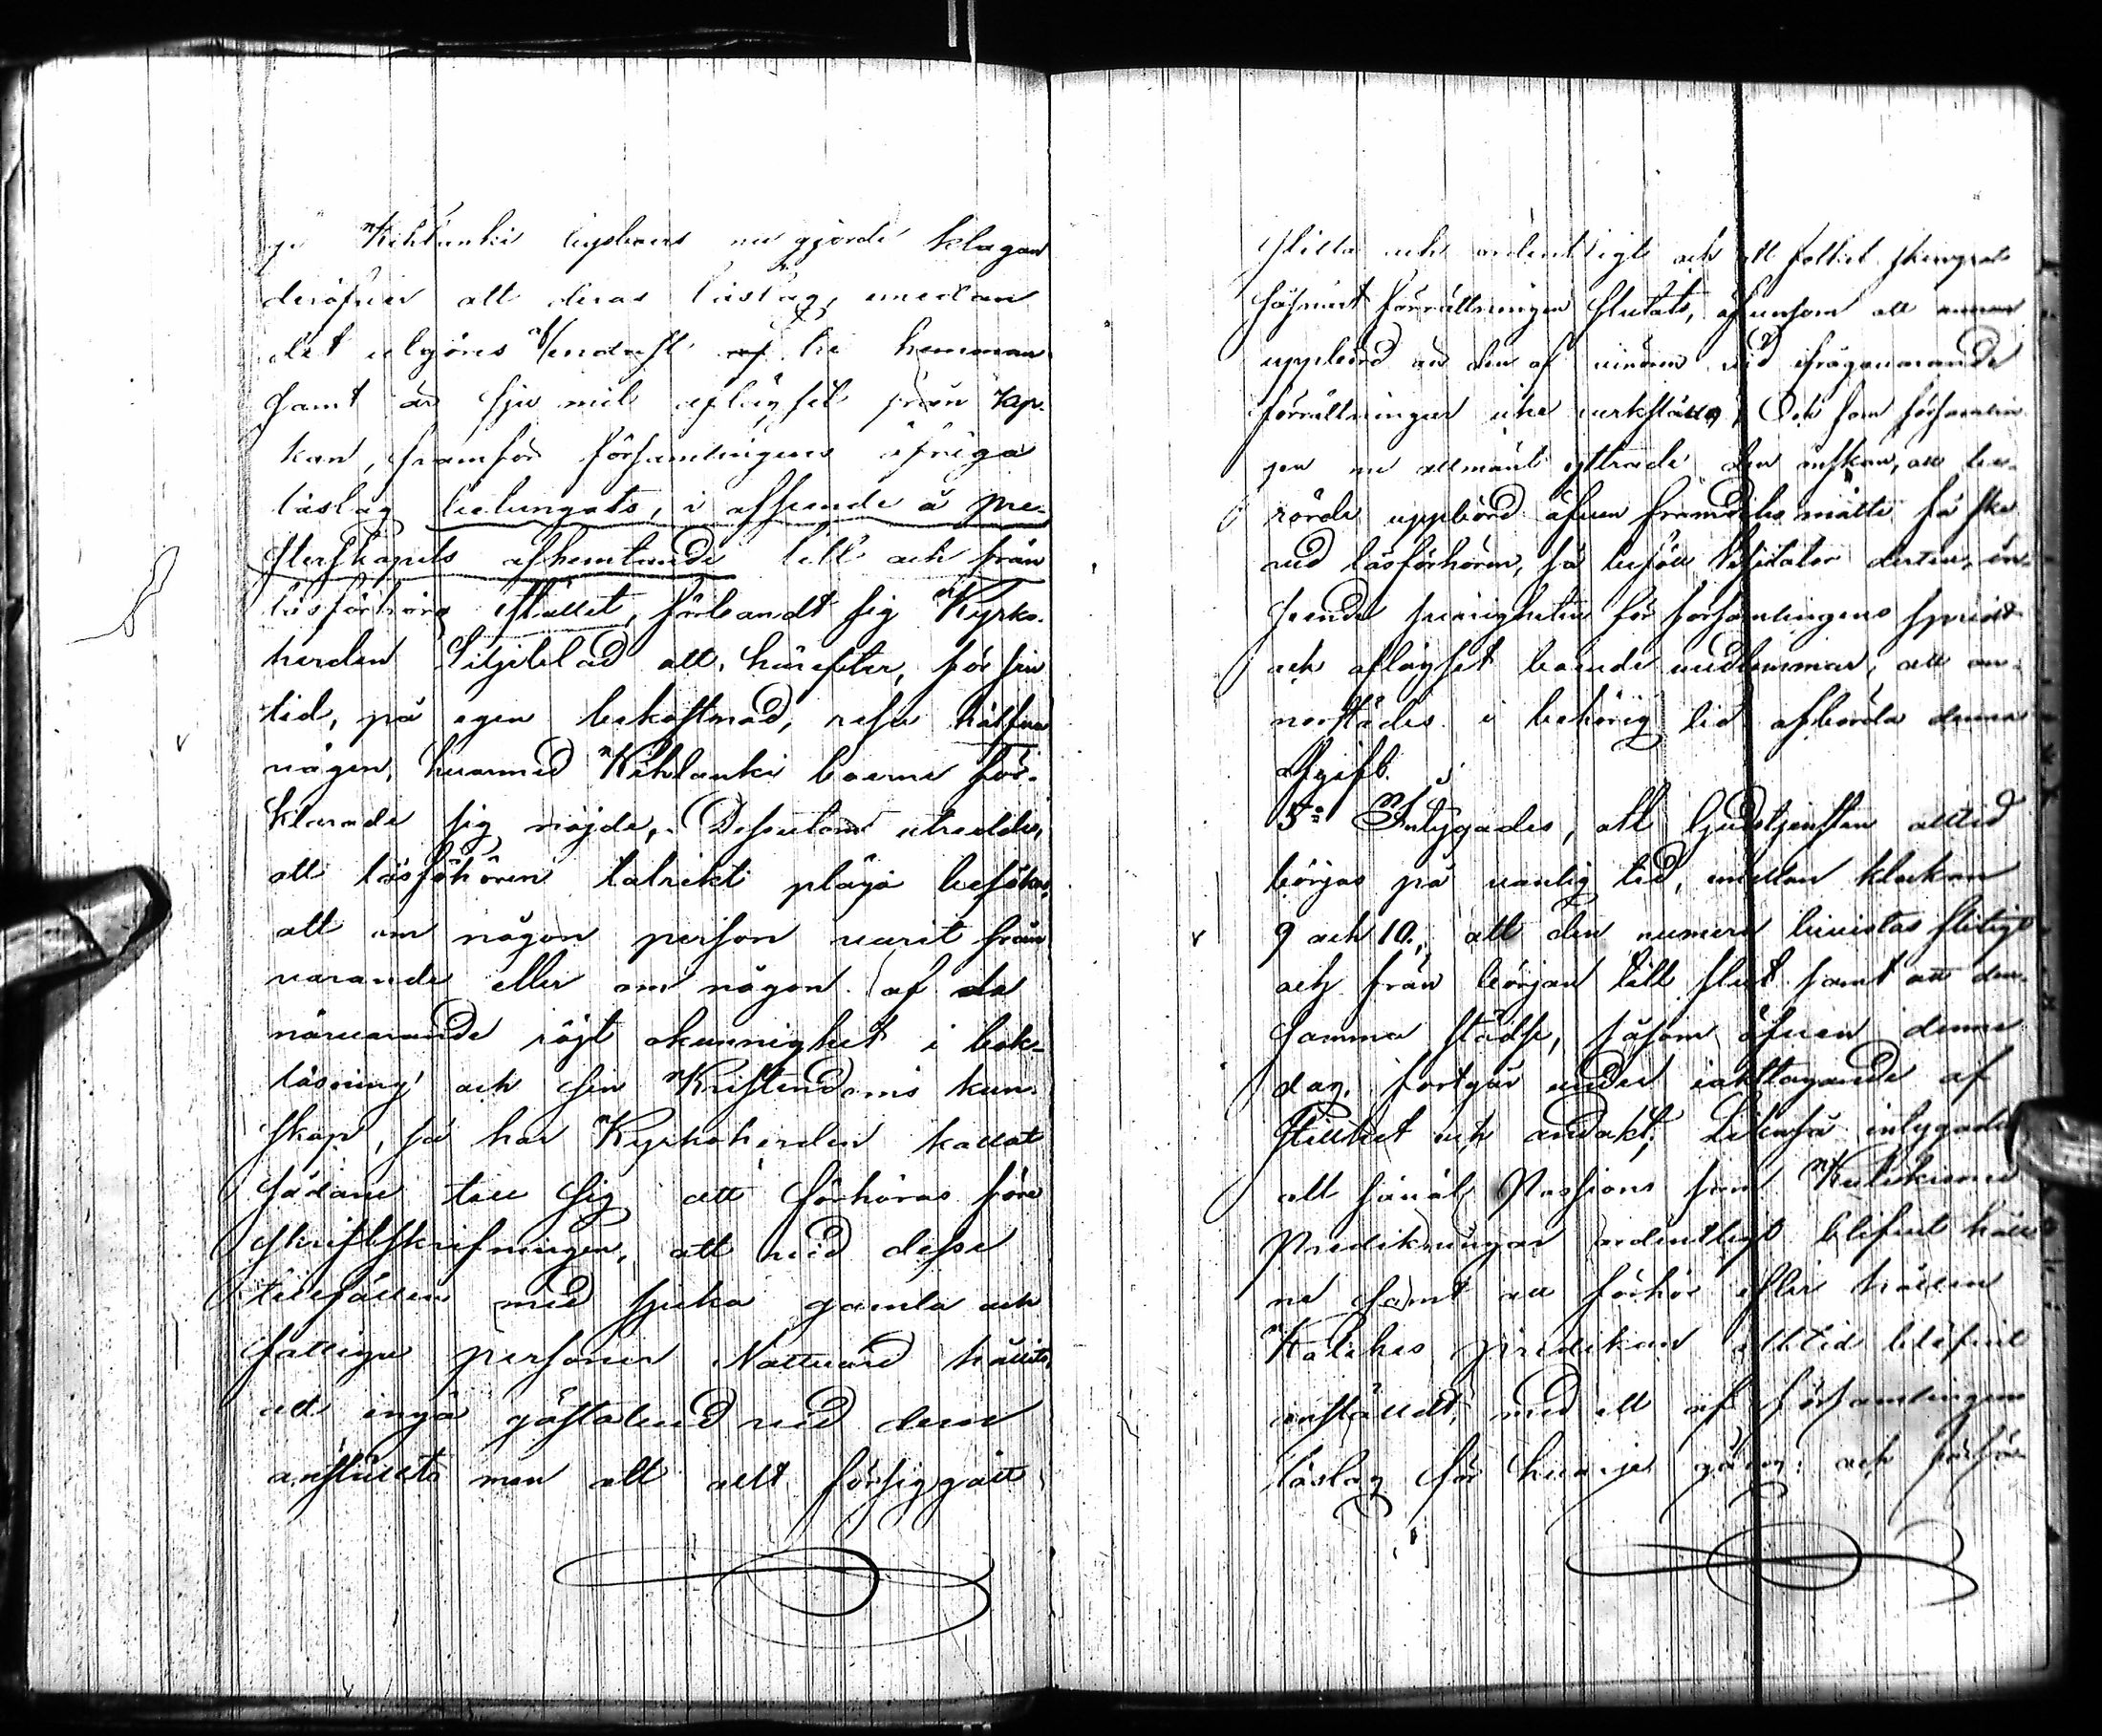 Kihlanki byeboers nu gjorde klagan
deröfver att deras läslag, emedan
det utgöres endast af tre hemman
samt är sju mil aflägset från Kap-
kan, framför församlingens öfriga
läslag betungats, i afseende å pre-
sterskapets afhemtande till och från
läsförhörs stället, förbandt sig Kyrko-
herden Liljeblad att, härefter, för sin
tid, på egen bekostnad, resa halfva
vägen, hvarmed Kihlanki boerne för-
klarade sig nöjde. Dessutom utreddes,
att läsföhören talrikt pläga besökas,
att om någon person varit från
varande eller om någon af de
närvarande röjt okunnighet i bok-
läsning och sin Kristendoms kun-
skap, så har Kyrkoherden kallat
sådane till sig att förhöras före
skriftskrifningen, att vid desse
tillfällen med sjuka gamla och
fattiga personer Nattvard hållits,
att inga gästabud vid dem
anställts men att allt försiggått
stilla och ordentligt och att folket skingrat
såsnart förrättningen slutats, äfvensom att annan
uppbörd än den af vinören vid ifrågavarande
förrättningar icke verkställes; Och som församlin
gen nu allmänt yttrade den önskan, att be-
rörde uppbörd äfven framdeles måtte få ske
vid läsförhören, så biföll Visitator dertill, in-
seende svårigheten för församlingens spridt
och aflägset boende medlemmar, att an-
norstädes i behörig tid afbörda denna
Afgift.
5:o Intygades, att Gudstjensten alltid
börjas på vanlig tid, emellan klockan
9 och 10., att den numera bevistas flitigt
och från början till slut samt att den-
samma städse, såsom äfven denna
dag, fortgår under iakttagande af
stillhet och andakt; Likaså intygades
att såväl Passions som Katekismi
Predikningar ordentligt blifvit håll
ne samt att förhör efter hållen
Kateches predikan alltid blifvit
anställdt, med ett af församlingens
läslag för hvarje gång; och förhör